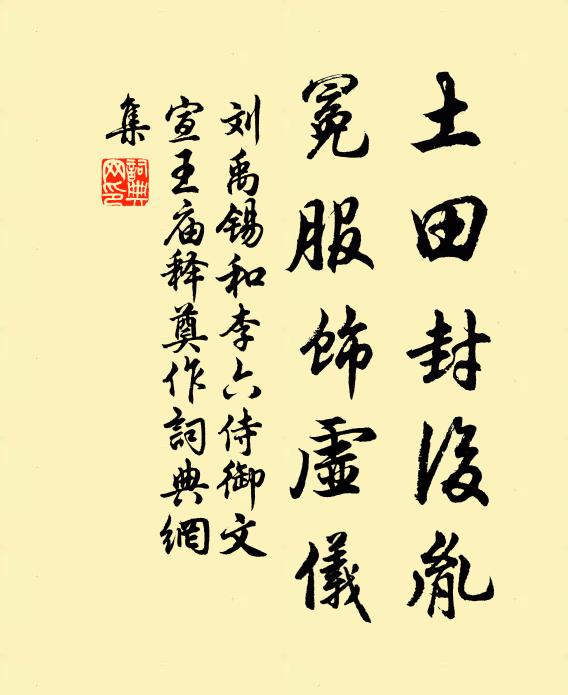 土田封後胤
冕服飾虛儀
刘禹锡和李六侍御文
宣王庙释奠作詞典網
集
詞典網印